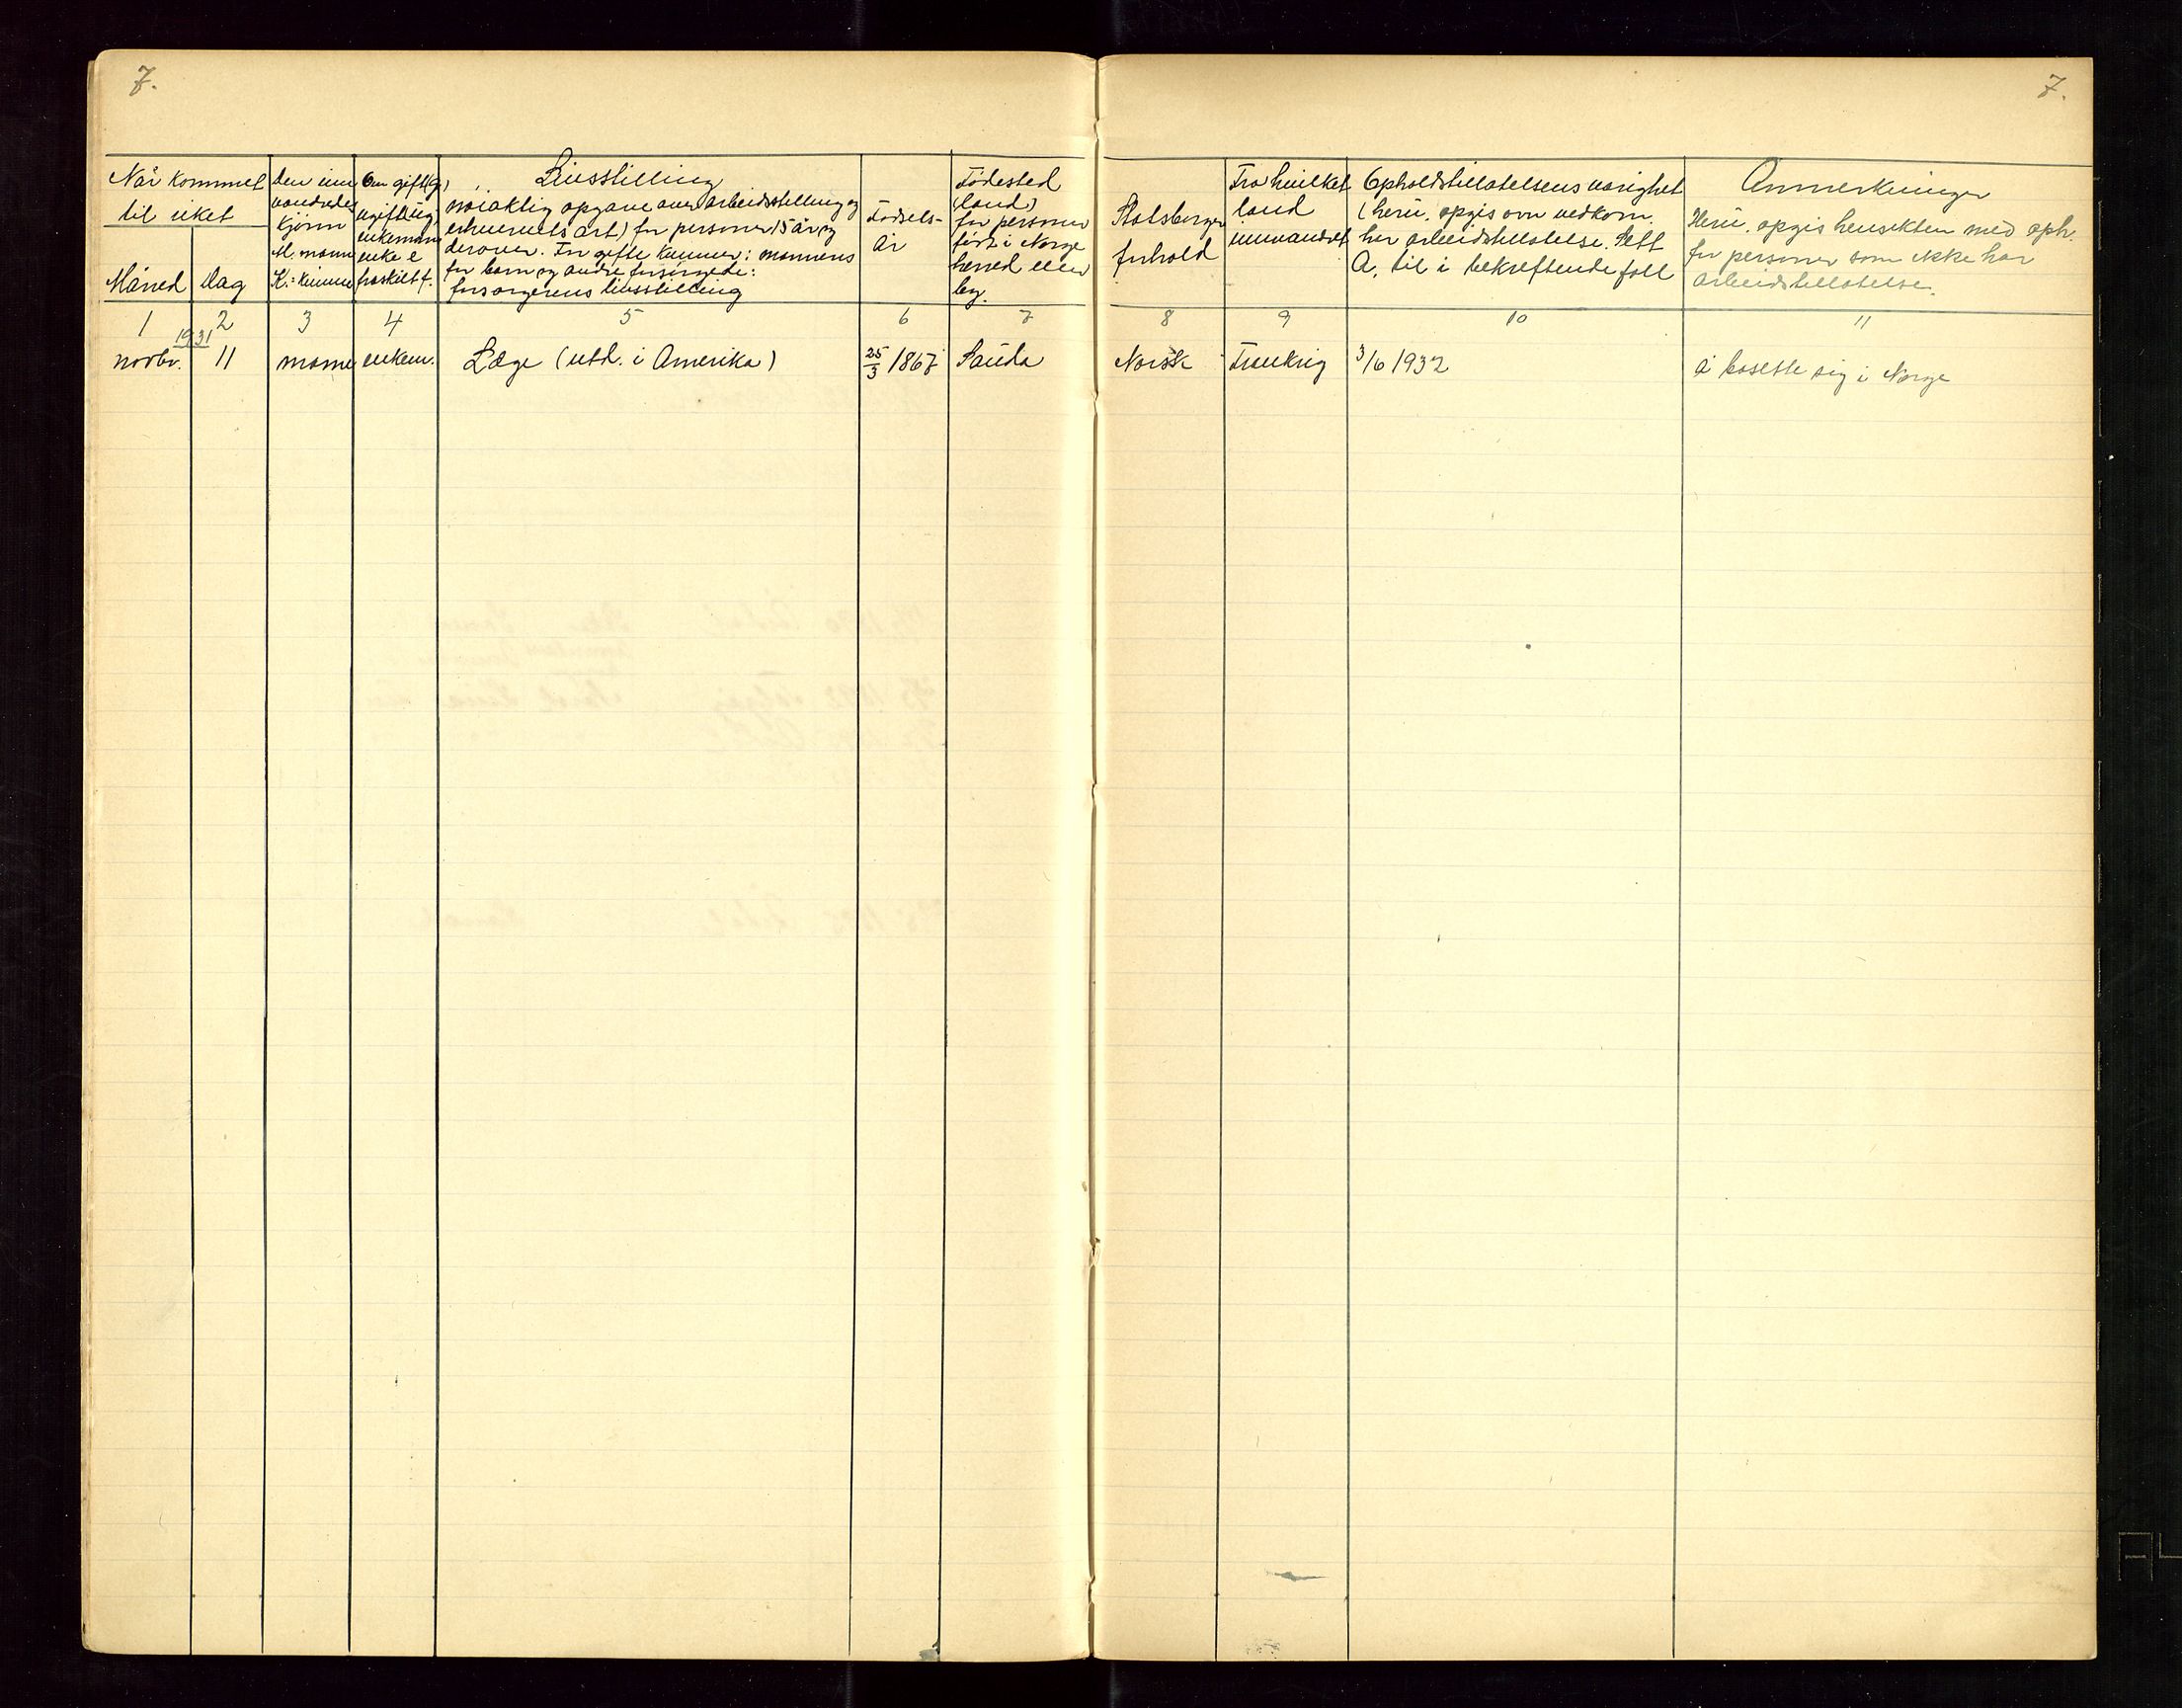 7.
7.
Når kommet
til riket
Måned
Dag
Den inn
vandredes
kjønn
M. mann
K: kvinne
Om gift (g)
ugift (ug)
enkemann
enke e
fraskilt f.
Livsstilling
nøiaktig opgave over arbeidsstilling og
erhvervets art) for personer 15 år og
derover. For gifte kvinner: mannens
for barn og andre forsørgede:
forsørgerens livsstilling
Fødsels-
år
Fødested
(land)
for personer
født i Norge
herred eller
by.
Statsborger
forhold
Fra hvilket
land
innvandret
Opholdstillatelsens varighet
(heri. opgis om vedkom.
har arbeidstillatelse. Sett
A. til i bekreftende fall
Anmerkninger
Heri. opgis hensikten med oph.
for personer som ikke har
arbeidstillatelse.
1 2 3 4 5 6 7 8 9 10 11
1931
novbr. 11 mann enkem. Læge (utd. i Amerika) 25/3 1867 Sauda Norsk Frankrig 3/6 1932 å bosette sig i Norge